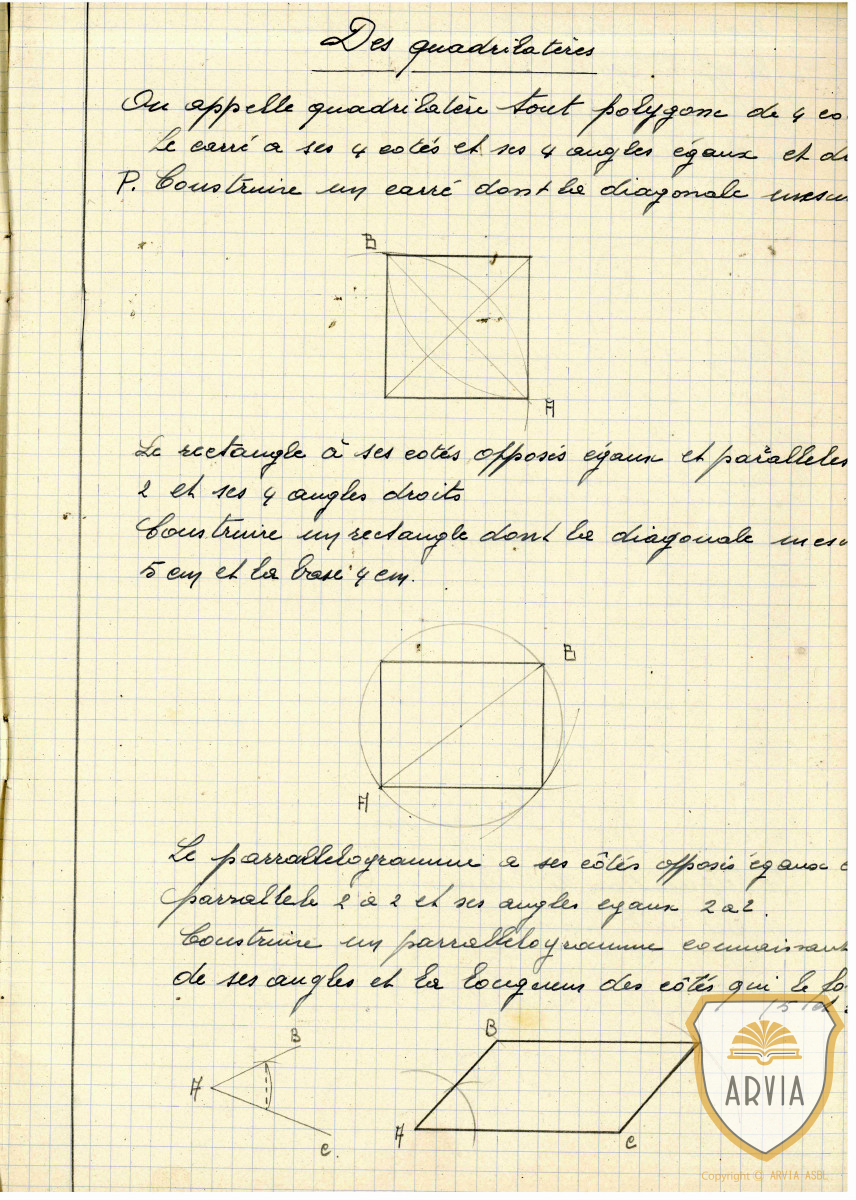 Des quadrilatères
On appelle quadrilatère tout polygone de 4 co
Le carré a ses 4 cotés et ses 4 angles égaux et d
P. Construire un carré dont la diagonale mesu
B
A
Le rectangle à ses cotés opposés égaux et paralleles
2 et ses 4 angles droits
Construire un rectangle dont la diagonale mesu
5 cm et la base 4 cm.
B
A
Le parrallelogramme a ses côtés opposés égaux
parrallele 2 à 2 et ses angles egaux 2 a 2.
Construire un parrallelogramme connaissant
de ses angles et la longueur des côtés qui le fo
(5 et
B
A
C
B
A
C
ARVIA
Copyright © ARVIA ASBL